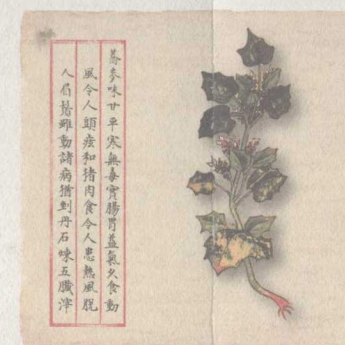 蕎麥味甘平寒無毒實腸胃益氣久食動
風令人頭疼和猪肉食令人患熱風脫
人眉鬚雖動諸病猶剉丹石煉五臟滓